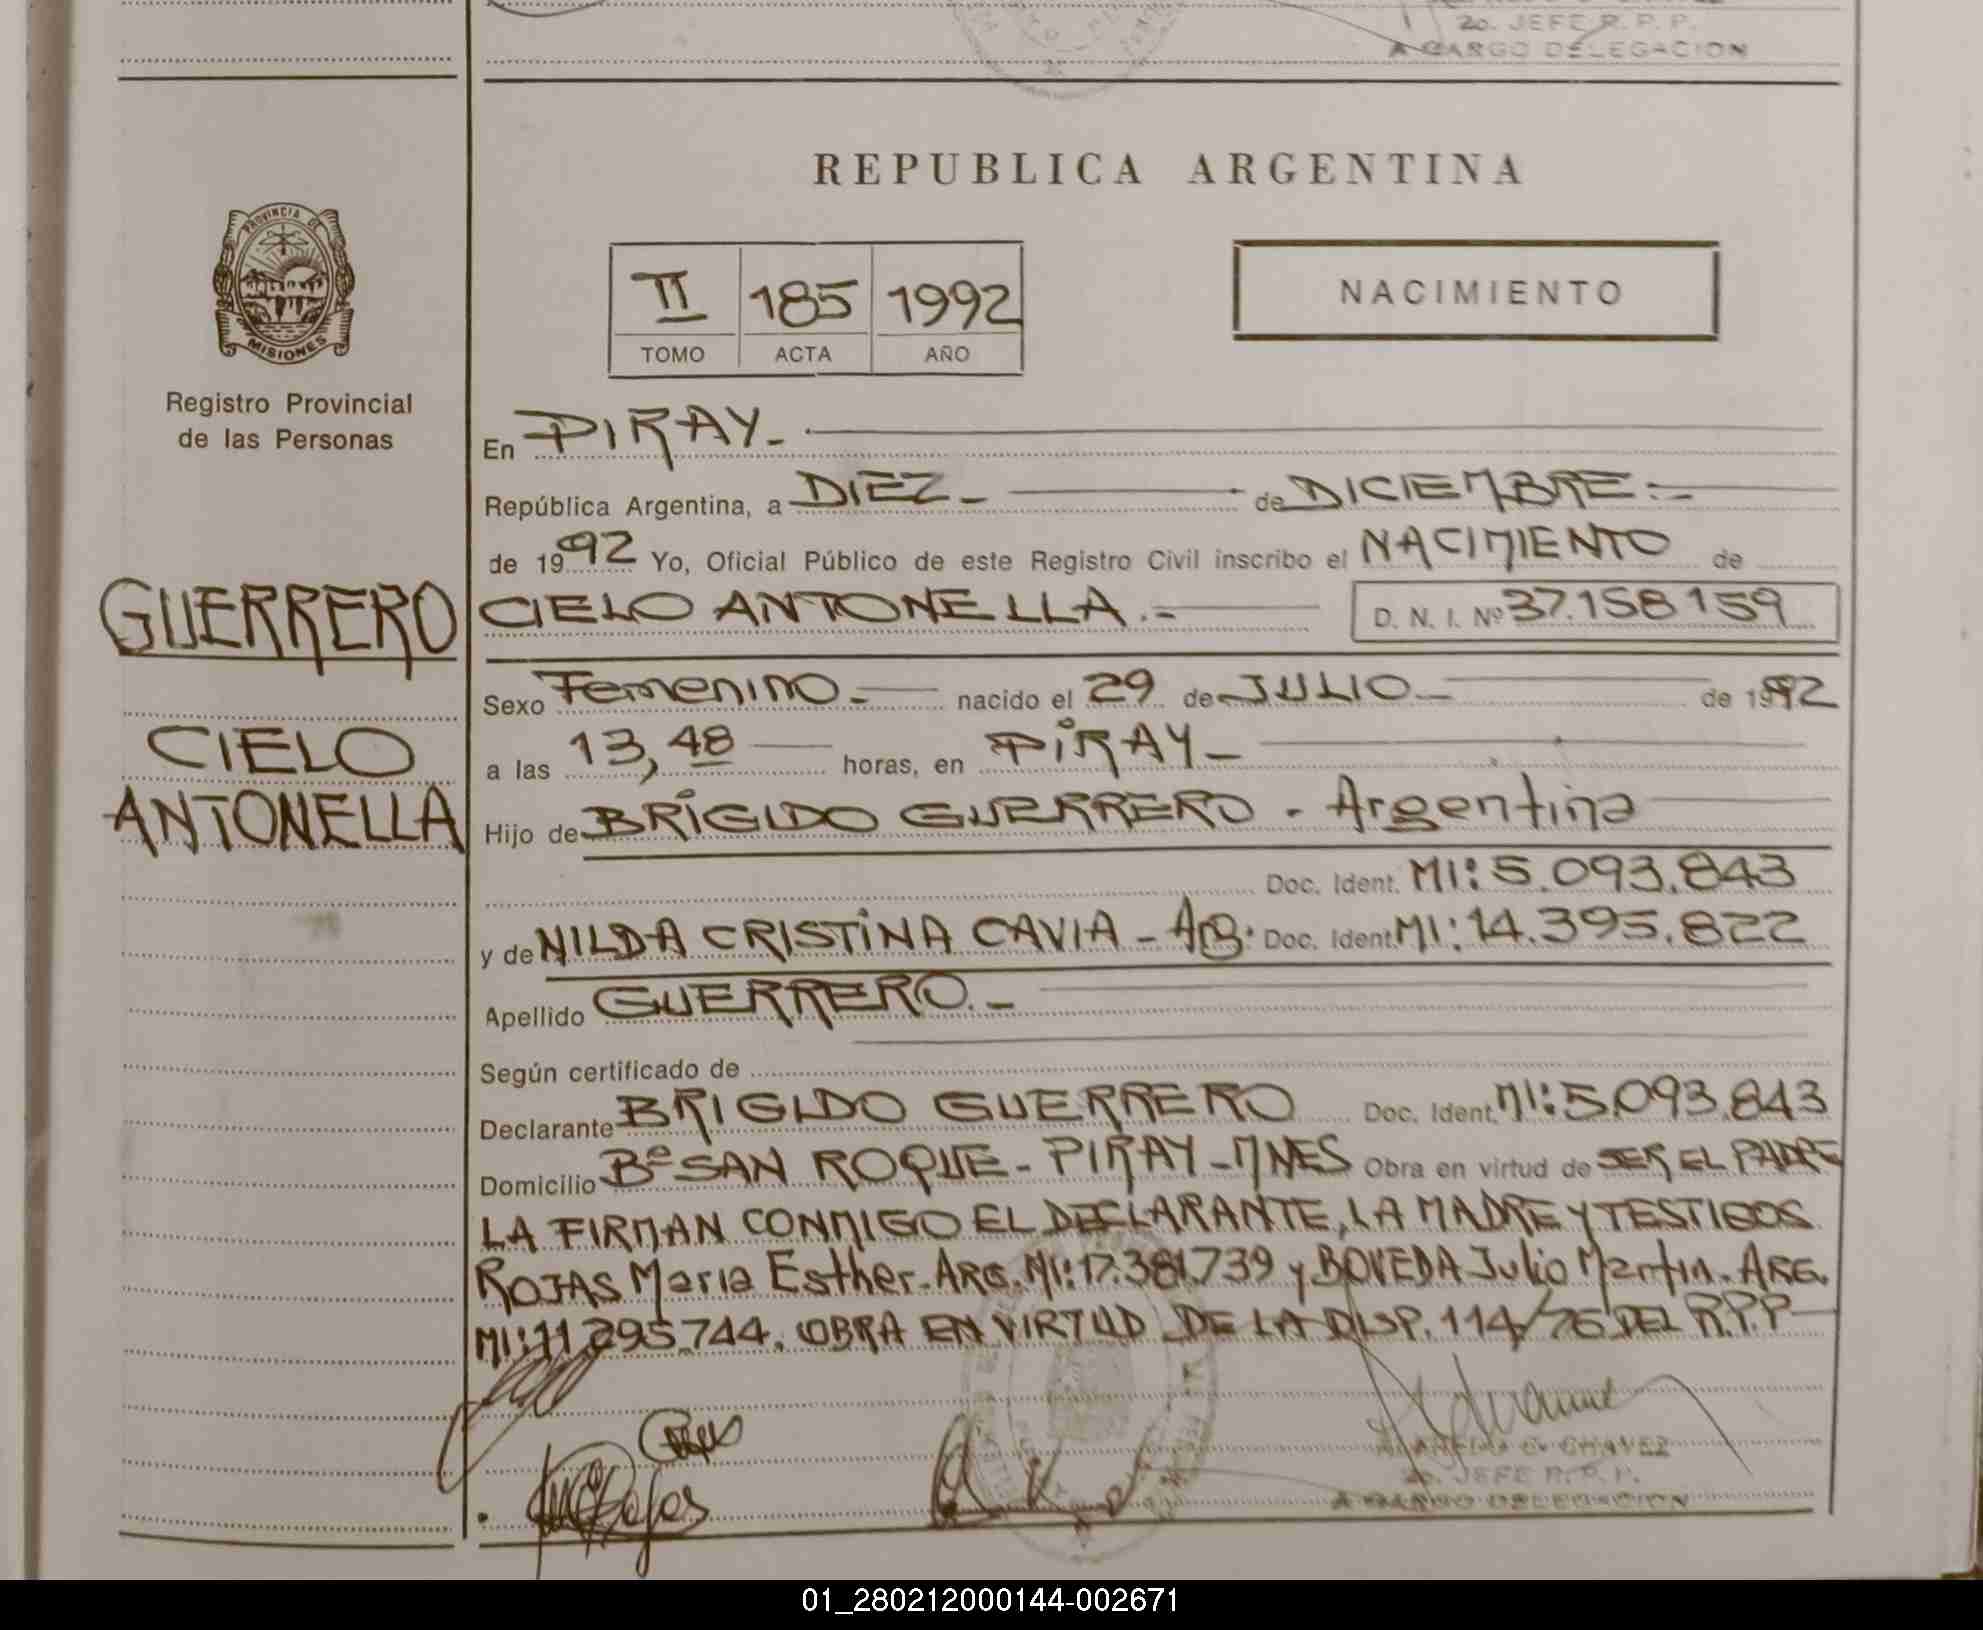 2o. JEFE R. P. P.
A CARGO DELEGACION
REPUBLICA ARGENTINA
PROVINCIA DE
MISIONES
Registro Provincial
de las Personas
II 185 1992
TOMO ACTA AÑO
NACIMIENTO
En PIRAY.-
República Argentina, a DIEZ.- de DICIEMBRE.-
de 1992 Yo, Oficial Público de este Registro Civil inscribo el NACIMIENTO de
GUERRERO
CIELO ANTONELLA.- D. N. I. Nº 37.158159
Sexo Femenino.- nacido el 29 de JULIO.- de 1992
CIELO
a las 13,48 horas, en PIRAY.-
ANTONELLA
Hijo de BRIGIDO GUERRERO - Argentina
Doc. Ident. MI: 5.093.843
y de NILDA CRISTINA CAVIA - ARG. Doc. Ident. MI: 14.395.822
Apellido GUERRERO.-
Según certificado de
Declarante BRIGIDO GUERRERO Doc. Ident. MI: 5.093.843
Domicilio Bº SAN ROQUE - PIRAY - MNES Obra en virtud de SER EL PADRE
LA FIRMAN CONMIGO EL DECLARANTE, LA MADRE Y TESTIGOS
ROJAS Maria Esther - ARG. MI: 17.381.739 y BOVEDA Julio Martin - ARG.
MI: 11.295.744. OBRA EN VIRTUD DE LA DISP. 114/76 DEL R.P.P
CHAVEZ
2o. JEFE R. P. P.
A CARGO DELEGACION
01_280212000144-002671